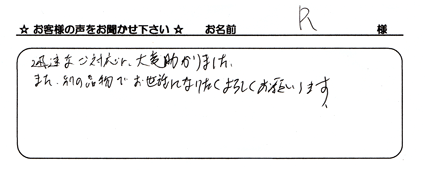 ☆ お客様の声をお聞かせ下さい ☆ お名前 R 様
迅速なご対応に、大変助かりました。
また、別の品物でお世話になりたくよろしくお願いします